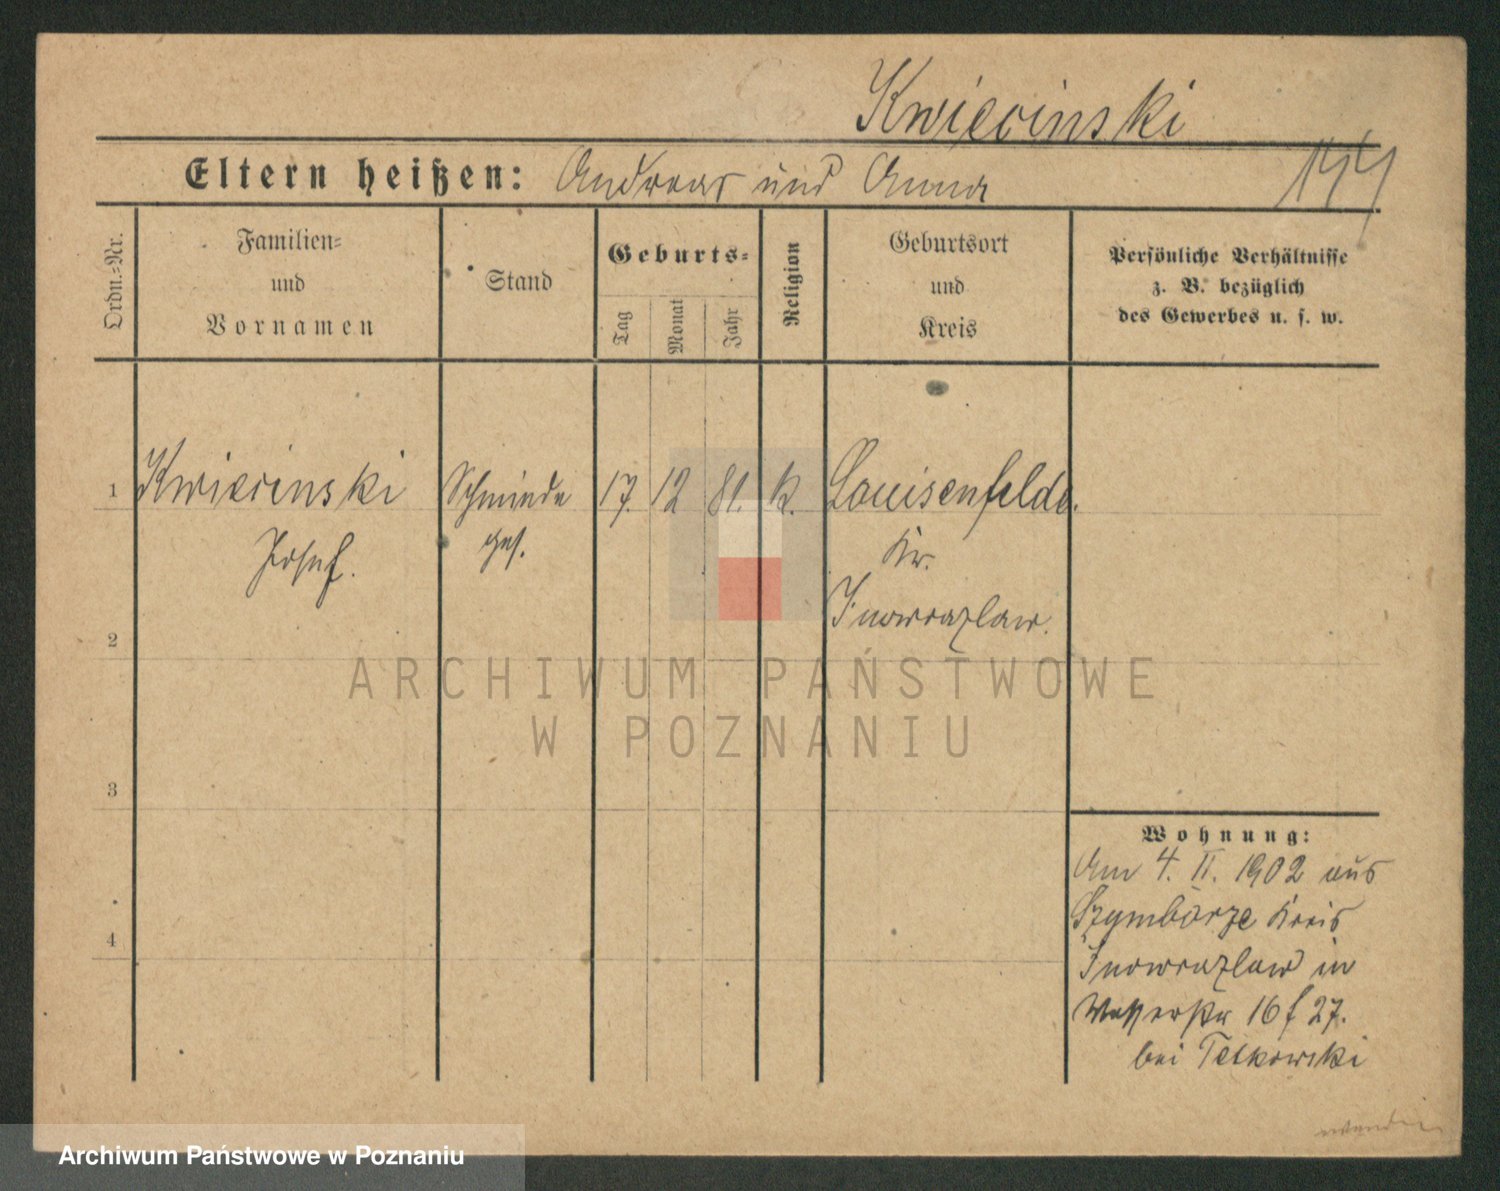 Kwiecinski
Eltern heißen: Andreas und Anna
Ordn.-Nr.
Familien-
und
Vornamen
Stand
Geburts-
Tag
Monat
Jahr
Religion
Geburtsort
und
Kreis
Persönliche Verhältnisse
z. B. bezüglich
des Gewerbes u. s. w.
1 Kwiecinski Schmiede 17. 12 81. k. Louisenfelde.
Josef. ges. Kr.
Inowrazlaw.
2
ARCHIWUM PAŃSTWOWE
W POZNANIU
3
Wohnung:
Am 4. II. 1902 aus
Szymborze Kreis
4
Inowrazlaw in
Wasserstr 16 f 27.
bei
Archiwum Państwowe w Poznaniu